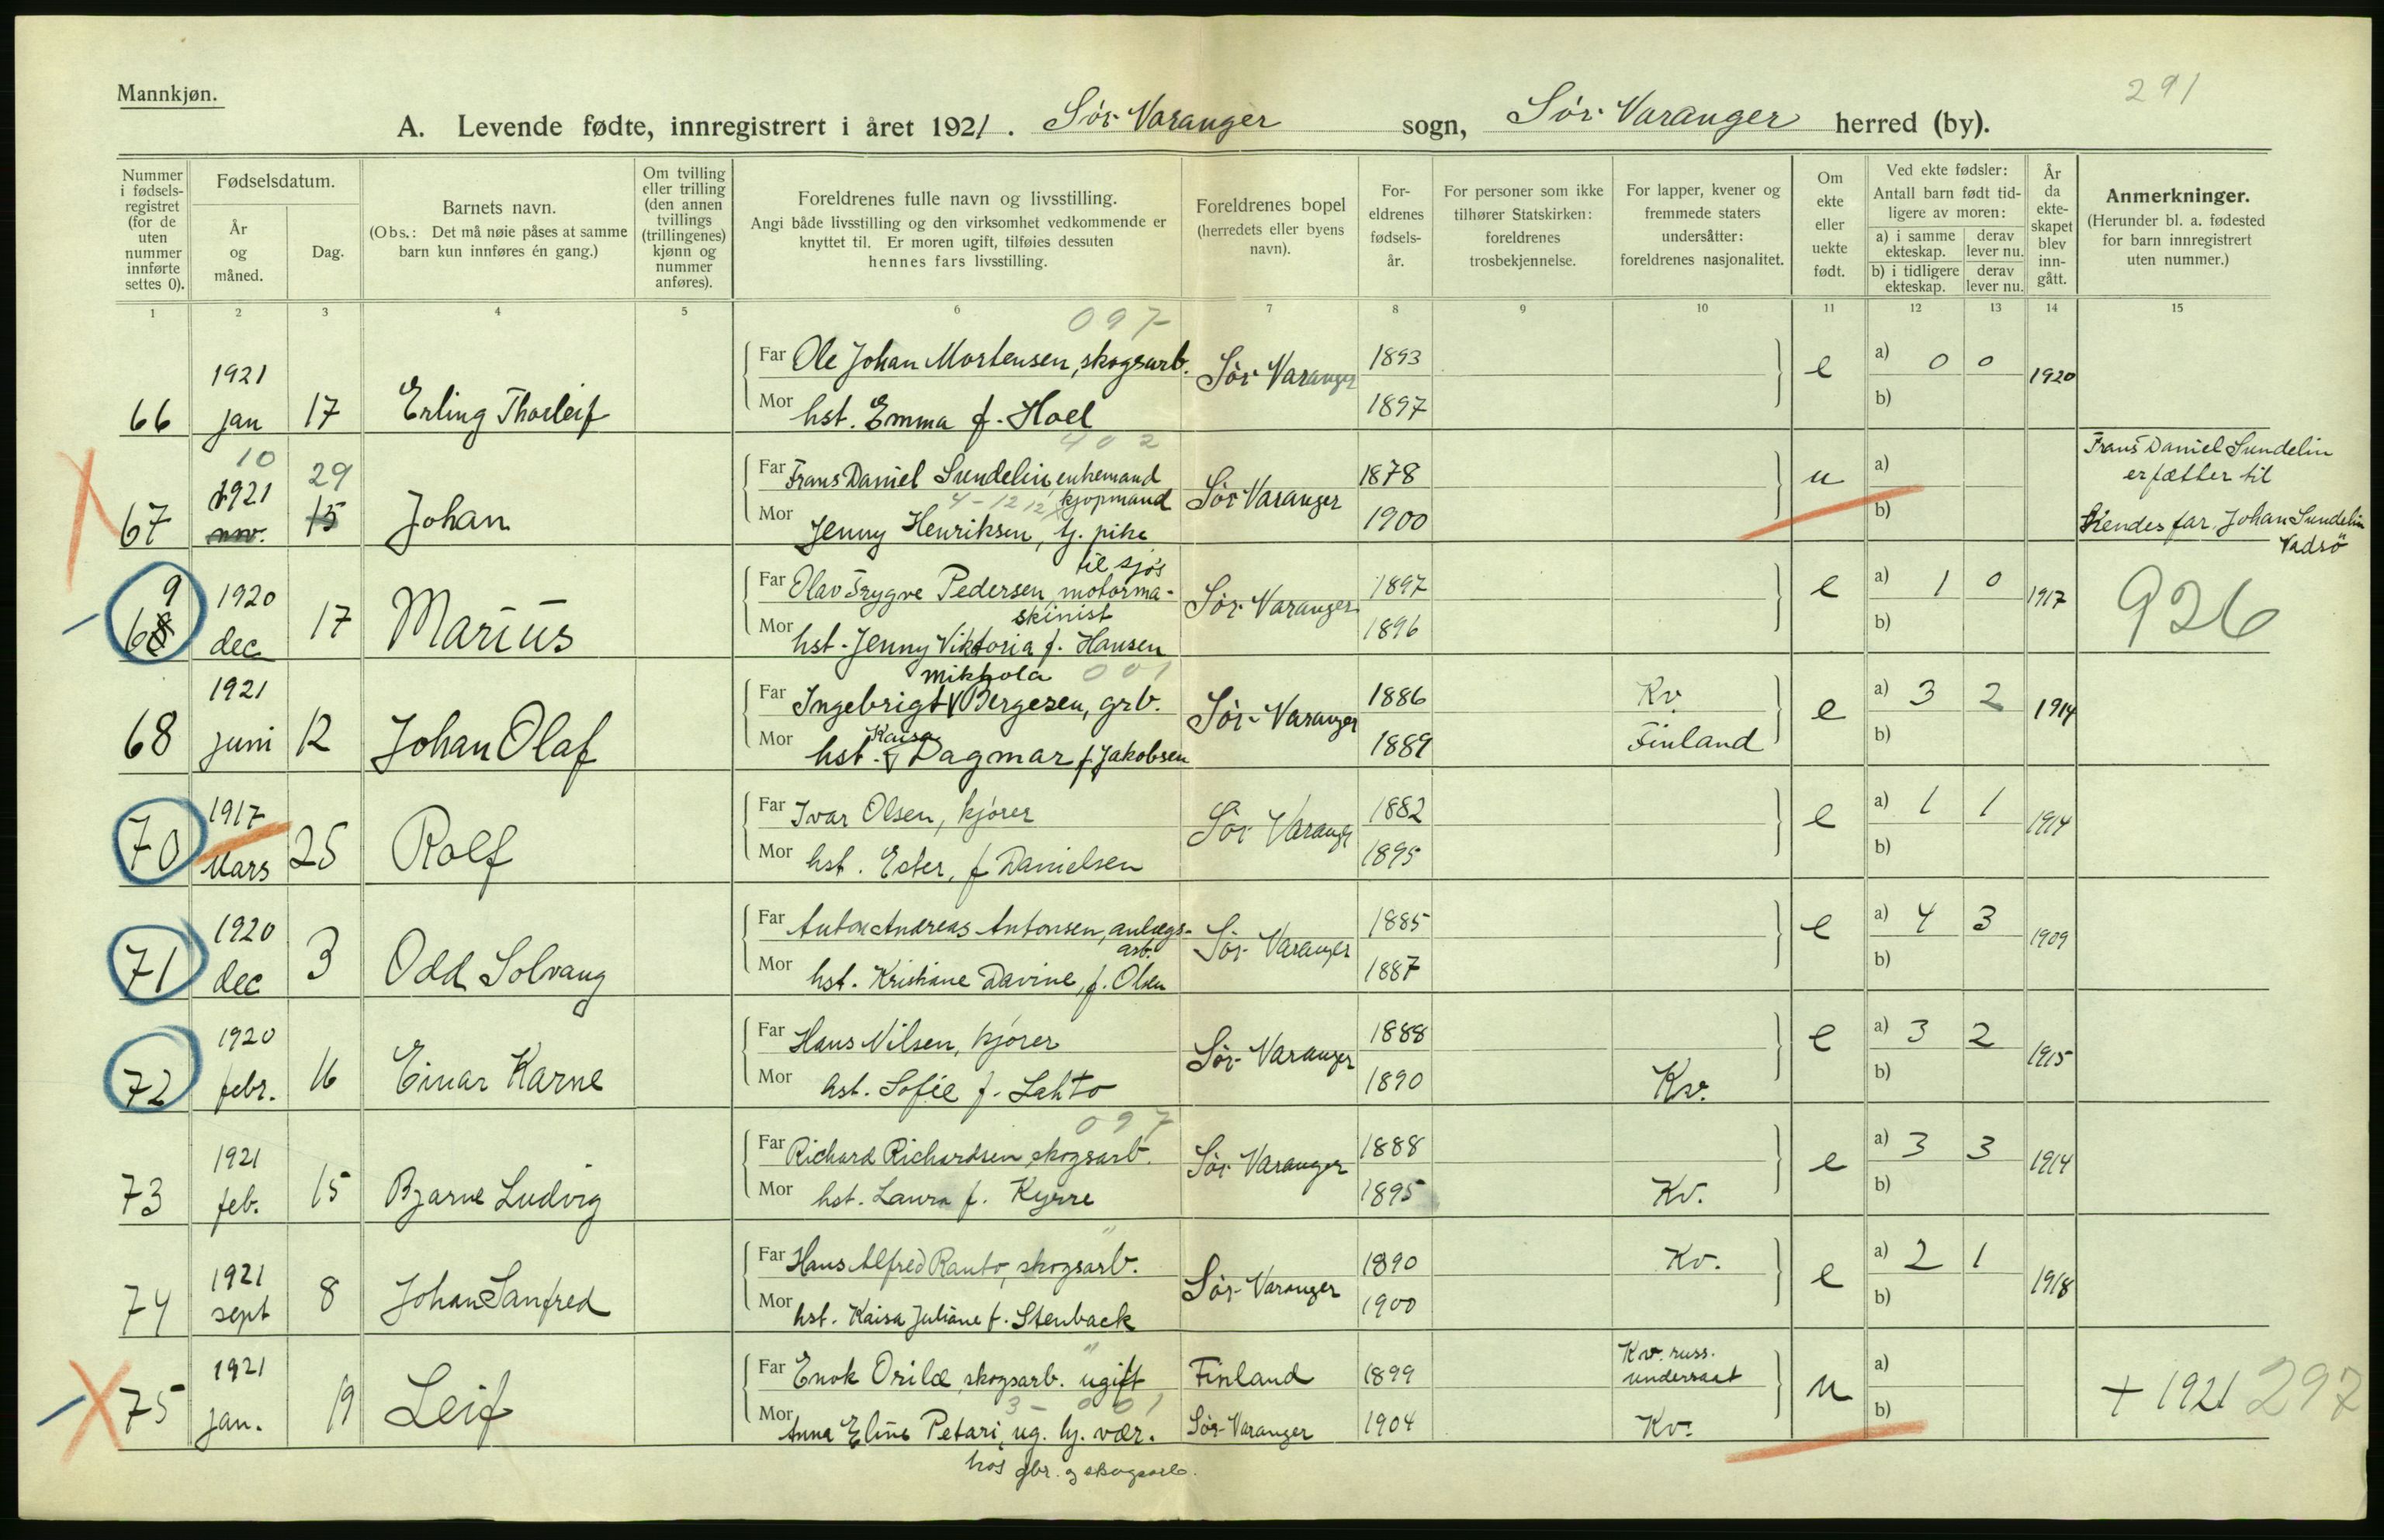 Mannkjøn.
291
A. Levende fødte, innregistrert i året 1921. Sør-Varanger sogn, Sør-Varanger herred (by).
Nummer i fødsels-registret (for de uten nummer innførte settes 0).
Fødselsdatum.
År og måned.
Dag.
Barnets navn.
(Obs.: Det må nøie påses at samme barn kun innføres én gang.)
Om tvilling eller trilling (den annen tvillings (trillingenes) kjønn og nummer anføres).
Foreldrenes fulle navn og livsstilling.
Angi både livsstilling og den virksomhet vedkommende er knyttet til. Er moren ugift, tilføies dessuten hennes fars livsstilling.
Foreldrenes bopel (herredets eller byens navn).
For-eldrenes fødsels-år.
For personer som ikke tilhører Statskirken: foreldrenes trosbekjennelse.
For lapper, kvener og fremmede staters undersåtter: foreldrenes nasjonalitet.
Om ekte eller uekte født.
Ved ekte fødsler:
Antall barn født tid-ligere av moren:
a) i samme ekteskap.
derav lever nu.
b) i tidligere ekteskap.
derav lever nu.
År da ekte-skapet blev inn-gått.
Anmerkninger.
(Herunder bl. a. fødested for barn innregistrert uten nummer.)
1 2 3 4 5 6 7 8 9 10 11 12 13 14 15
097
66 1921 jan 17 Erling Thorleif
Far Ole Johan Mortensen, skogsarb. Sør-Varanger 1893 e a) 0 0 1920
Mor hst. Emma f. Hoel 1897 b)
402
67 10 1921 nov. 29 15 Johan
Far Frans Daniel Sundelin, enkemand kjøpmand Sør-Varanger 1878 u a)
4-12
Mor Jenny Henriksen, tj. pike 1900 b)
Frans Daniel Sundelin
er fætter til
Hendes far, Johan Sundelin
Vadsö
69 1920 dec 17 Marius
Far Olav Trygve Pedersen, motorma-skinist til sjøs Sør-Varanger 1897 e a) 1 0 1917 926
Mor hst. Jenny Viktoria f. Hansen 1896 b)
001
68 1921 juni 12 Johan Olaf
Far Ingebrigt Mikkola Bergesen, grb. Sør-Varanger 1886 Kv. e a) 3 2 1914
Mor hst. Kaisa Dagmar f. Jakobsen 1889 Finland b)
70 1917 Mars 25 Rolf
Far Ivar Olsen, kjører Sør-Varanger 1882 e a) 1 1 1914
Mor hst. Ester, f. Danielsen 1895 b)
71 1920 dec 3 Odd Solvang
Far Anton Andreas Antonsen, anlægs-arb. Sør-Varanger 1885 e a) 4 3 1909
Mor hst. Kristiane Davine, f. Olsen 1887 b)
72 1920 febr. 16 Einar Karne
Far Hans Nilsen, kjører Sør-Varanger 1888 e a) 3 2 1915
Mor hst. Sofie f. Lahto 1890 Kv. b)
097
73 1921 feb. 15 Bjarne Ludvig
Far Richard Richardsen, skogsarb. Sør-Varanger 1888 e a) 3 3 1914
Mor hst. Laura f. Kyrre 1895 Kv. b)
"
74 1921 sept 8 Johan Sanfred
Far Hans Alfred Rauto, skogsarb. Sør-Varanger 1890 Kv. e a) 2 1 1918
Mor hst. Kaisa Juliane f. Stenback 1900 b)
"
75 1921 jan. 19 Leif
Far Enok Orilæ, skogsarb. ugift Finland 1899 Kv. russ. undersaat u a) + 1921 297
3- 001
Mor Anna Eline Petari, ug. hj. vær. Sør-Varanger 1904 Kv. b)
hos gbr. og skogsarb.